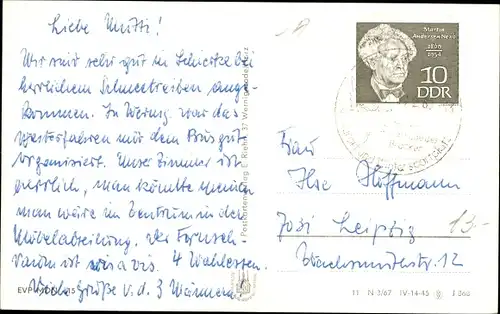 Liebe Mutti!
Wir sind sehr gut in Schierke bei
herrlichem Schneetreiben ange-
kommen. In Wernig. war das
weiterfahren mit dem Bus gut
organisiert. Unser Zimmer ist
herrlich, man könnte meinen
man wäre im Zentrum in der
Möbelabteilung. Der Fernseh-
raum ist vis a vis. 4 Wahlessen.
Viele Grüße v. d. 3 Männern
EVP MDN
Postkartenverlag E. Riehn, 37 Wernigerode/Harz
Martin
Andersen Nexö
1869
1954
10
DDR
Frau
Ilse Hoffmann
7031 Leipzig
Wachsmuthstr. 12
13.-
11 N 3/67 IV-14-45 J 365